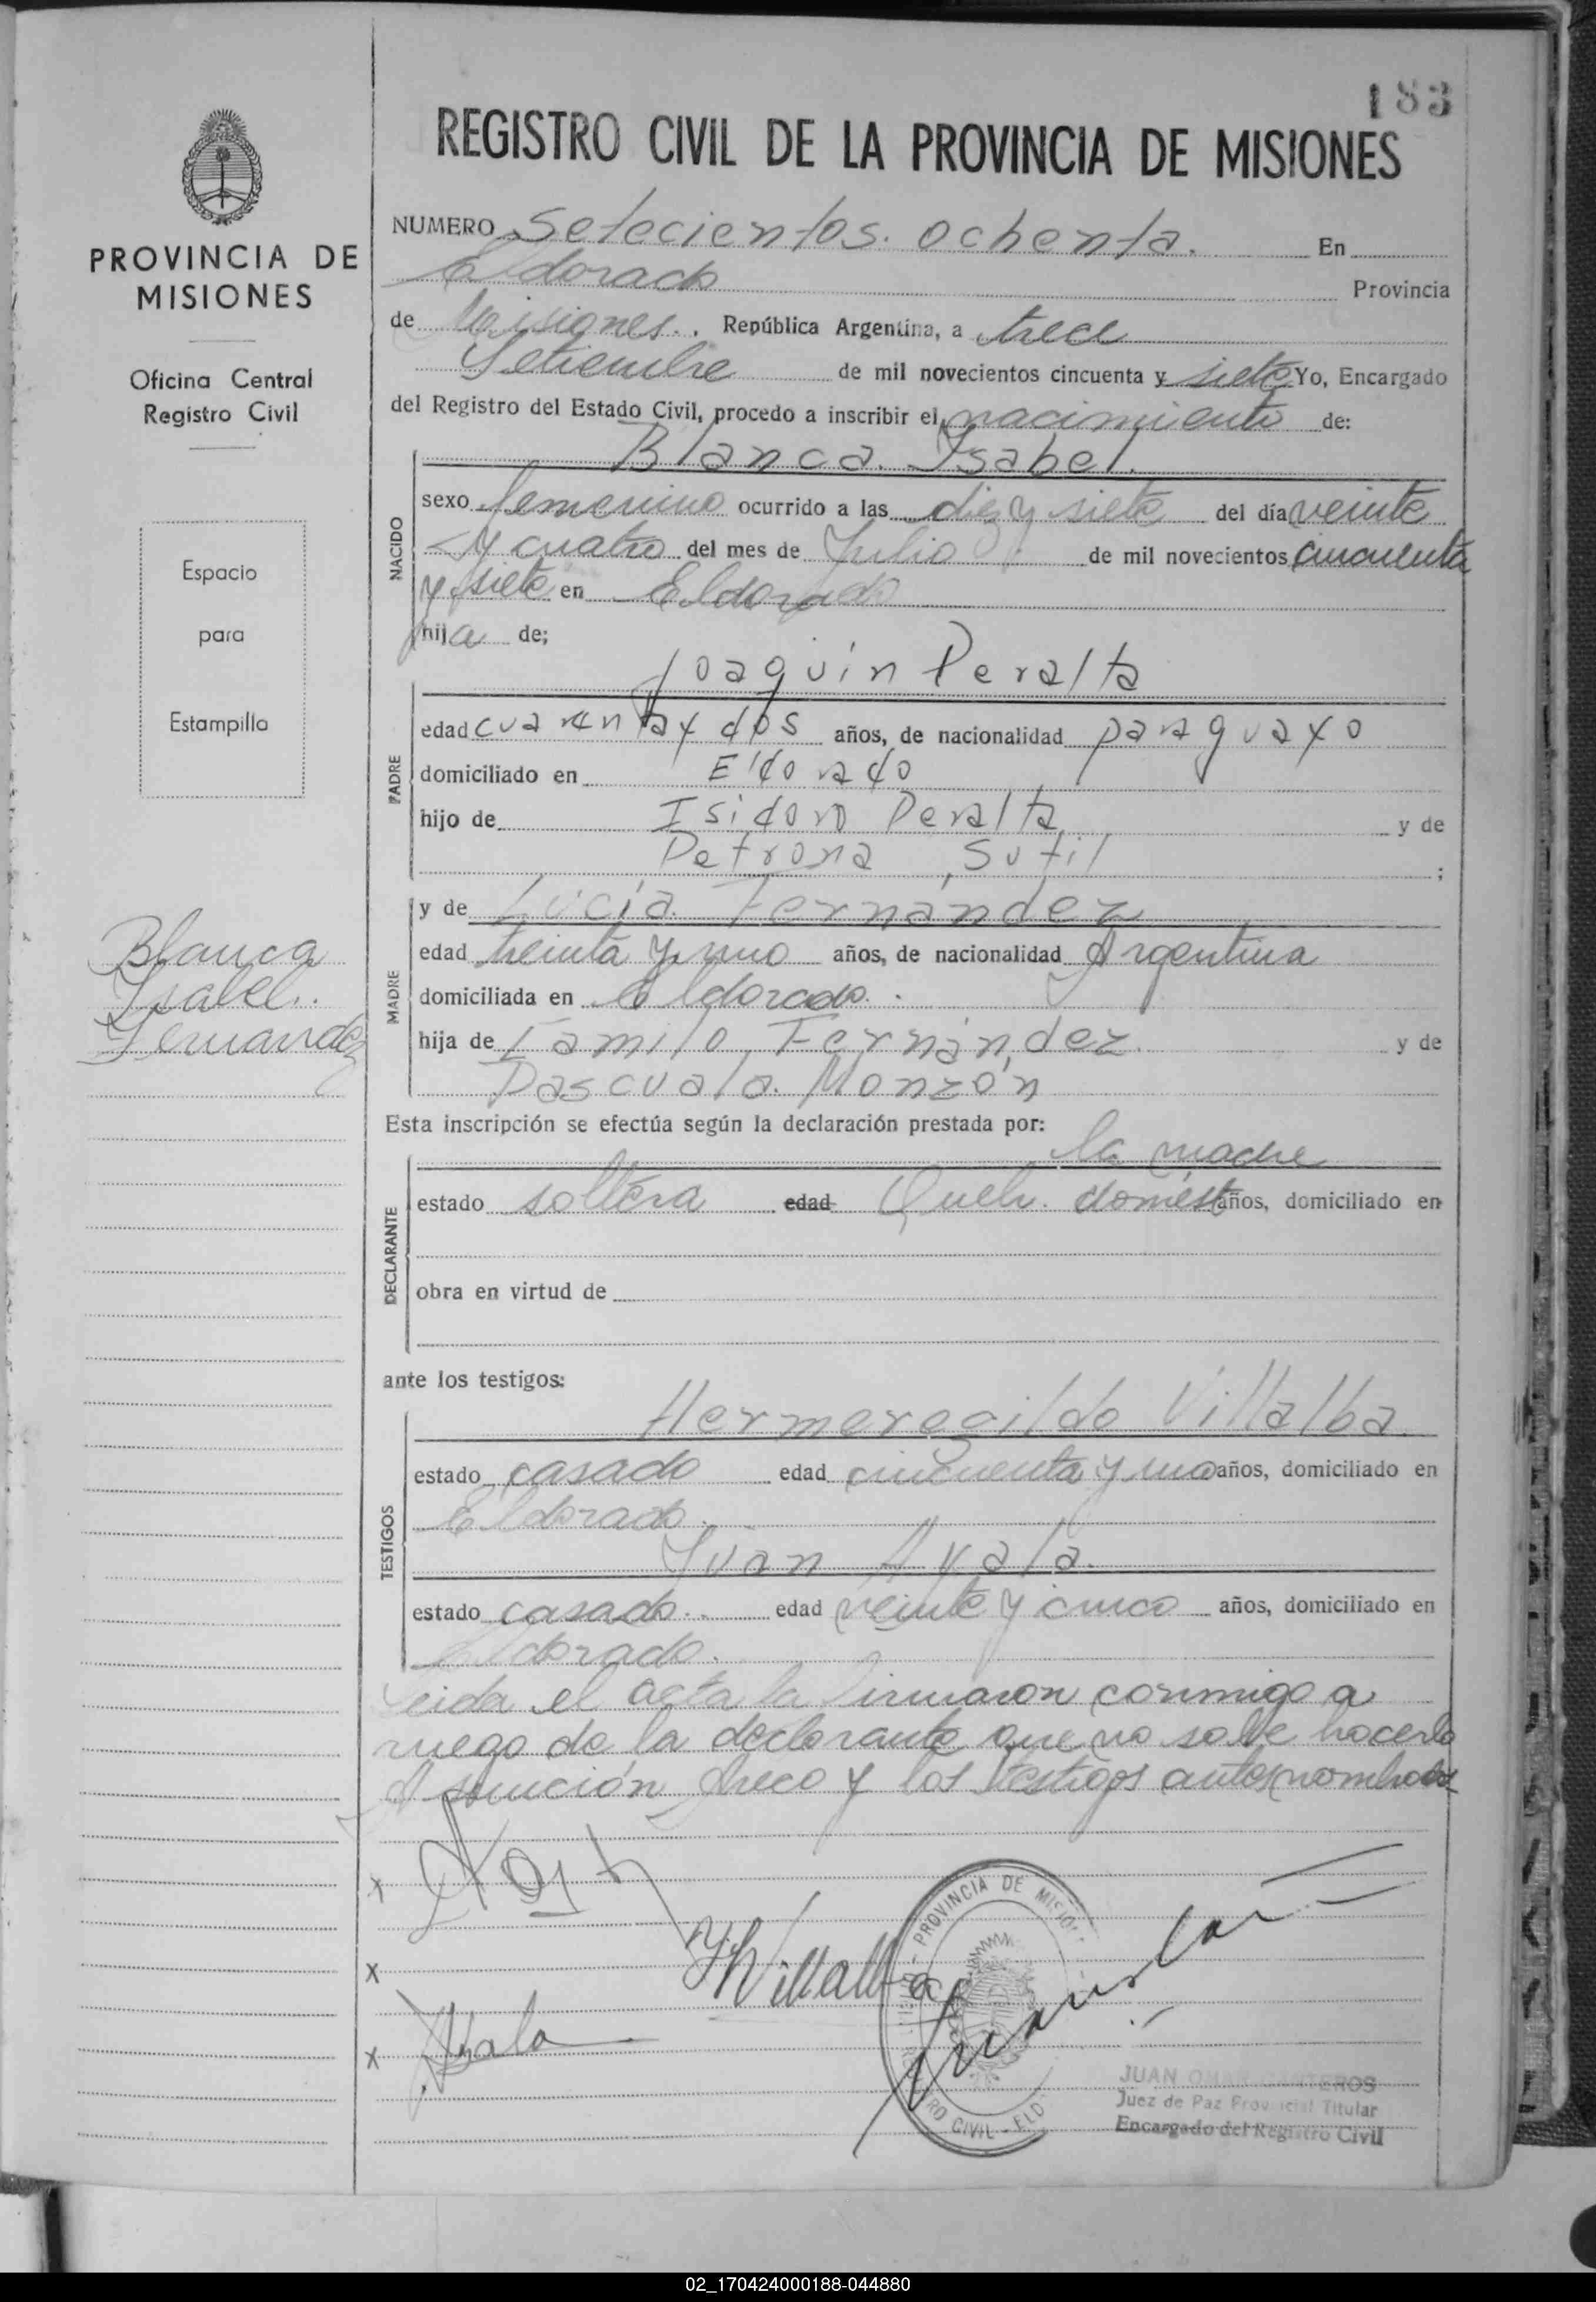 183
REGISTRO CIVIL DE LA PROVINCIA DE MISIONES
PROVINCIA DE
MISIONES
Oficina Central
Registro Civil
Espacio
para
Estampilla
Blanca
Isabel.
Fernandez
NUMERO Setecientos. ochenta. En
Eldorado Provincia
de Misiones. República Argentina, a trece
Setiembre de mil novecientos cincuenta y siete Yo, Encargado
del Registro del Estado Civil, procedo a inscribir el nacimiento de:
Blanca. Isabel.
NACIDO
sexo femenino ocurrido a las diez y siete del día veinte
y cuatro del mes de Julio de mil novecientos cincuenta
y siete en Eldorado
hija de;
Joaquin Peralta
PADRE
edad cuarenta y dos años, de nacionalidad paraguayo
domiciliado en Eldorado
hijo de Isidoro Peralta y de
Petrona Sutil ;
MADRE
y de Lucía Fernández
edad treinta y uno años, de nacionalidad Argentina
domiciliada en Eldorado.
hija de Fernández y de
Pascuala Monzón
Esta inscripción se efectúa según la declaración prestada por:
la madre
DECLARANTE
estado soltera edad Queh. domést años, domiciliado en
obra en virtud de
ante los testigos:
TESTIGOS
Hermeregildo Villalba
estado casado edad cincuenta y uno años, domiciliado en
Eldorado.
Juan Ayala.
estado casado. edad veinte y cinco años, domiciliado en
Eldorado.
Leida el acta la firmaron conmigo a
ruego de la declarante que no sabe hacerlo
Asunción y los testigos antes nombrados
x
x HVillalba
x Ayala
PROVINCIA DE MISIONES
REGISTRO CIVIL - ELD
JUAN OMAR CANTEROS
Juez de Paz Provincial Titular
Encargado del Registro Civil
02_170424000188-044880